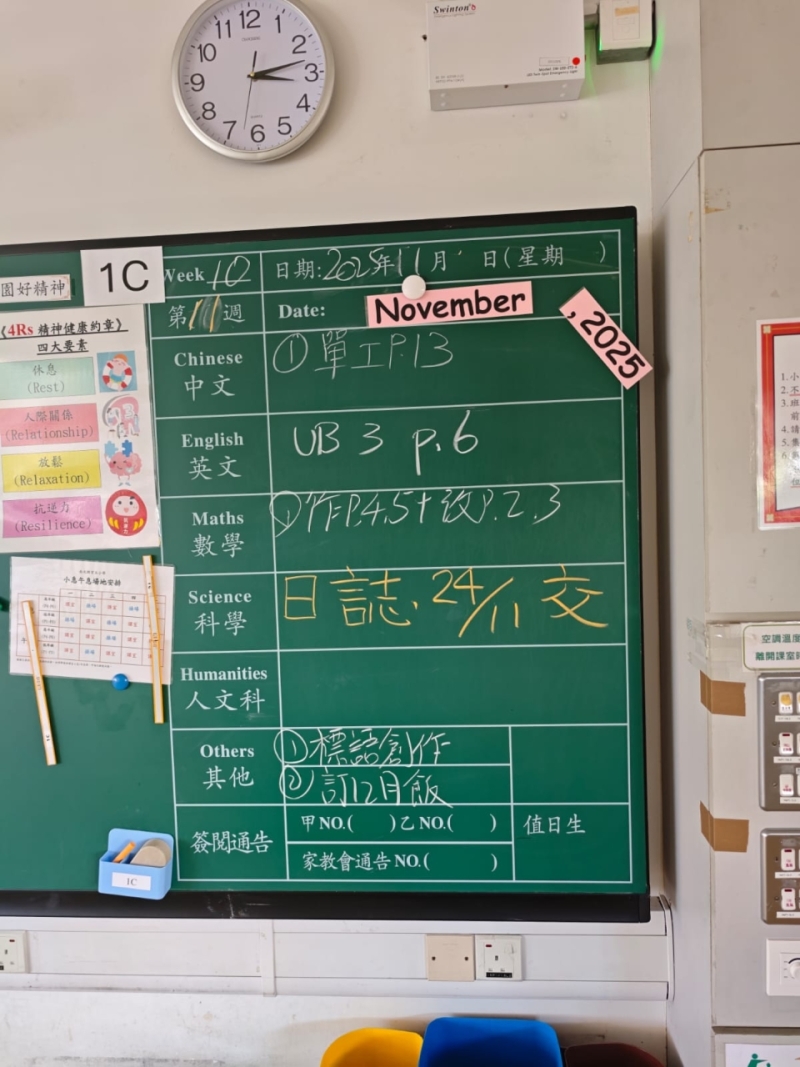 12
1
2
3
4
5
6
7
8
9
10
11
Swinton
園好精神
1C
Week 10
日期:2025年11月 日(星期 )
第 週
Date: November , 2025
《4Rs 精神健康約章》
四大要素
休息
(Rest)
人際關係
(Relationship)
放鬆
(Relaxation)
抗逆力
(Resilience)
Chinese
中文
① 單工P.13
English
英文
UB 3 p.6
Maths
數學
① 作P.4,5+改P.2,3
小息午息場地安排
Science
科學
日誌. 24/11 交
Humanities
人文科
Others
其他
① 標語創作
② 訂12月飯
簽閱通告
甲NO.( )乙NO.( )
家教會通告NO.( )
值日生
1C
1.小
2.不
3.班
前
4.請
空調溫度
離開課室